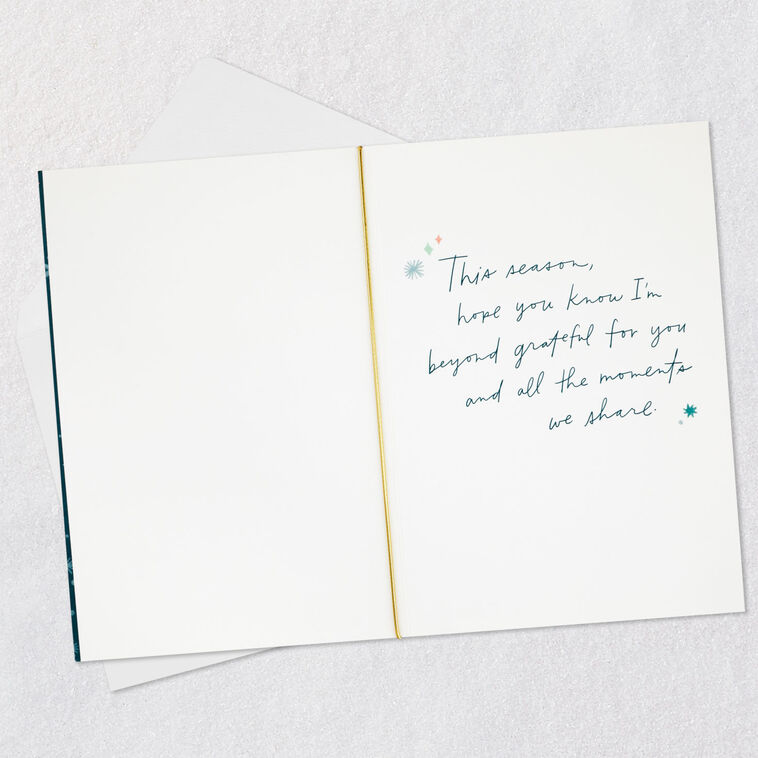 This season,
hope you know I'm
beyond grateful for you
and all the moments
we share.